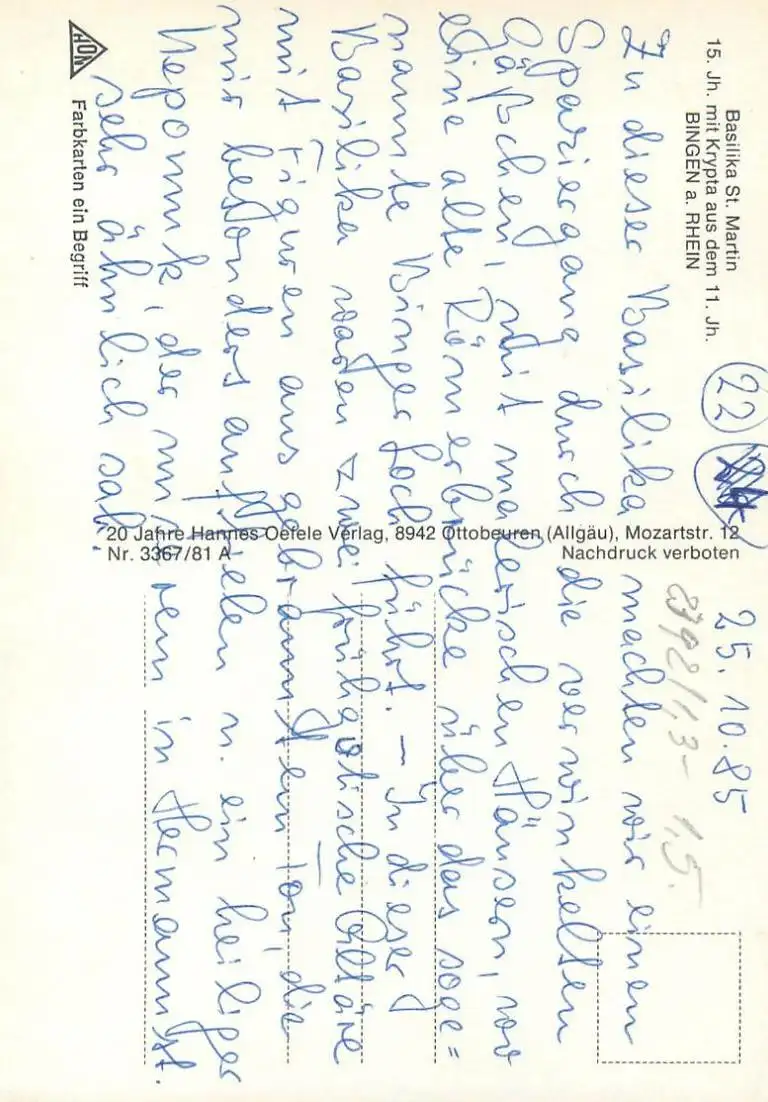 Basilika St. Martin
15. Jh. mit Krypta aus dem 11. Jh.
BINGEN a. RHEIN
22
25.10.85
1,5.
Zu dieser Basilika machten wir einen
Spaziergang durch die verwinkelten
Gäßchen, mit malerischen Häusern, wo
eine alte Römerbrücke über das soge=
nannte Binger Loch führt. – In dieser
Basilika waren zwei frühgotische Altäre
mit Figuren aus gebranntem Ton, die
mir besonders auffielen u. ein heiliger
Nepomuk, der in Hermannst.
sehr ähnlich sah.
20 Jahre Hannes Oefele Verlag, 8942 Ottobeuren (Allgäu), Mozartstr. 12
Nr. 3367/81 A
Nachdruck verboten
HON
Farbkarten ein Begriff